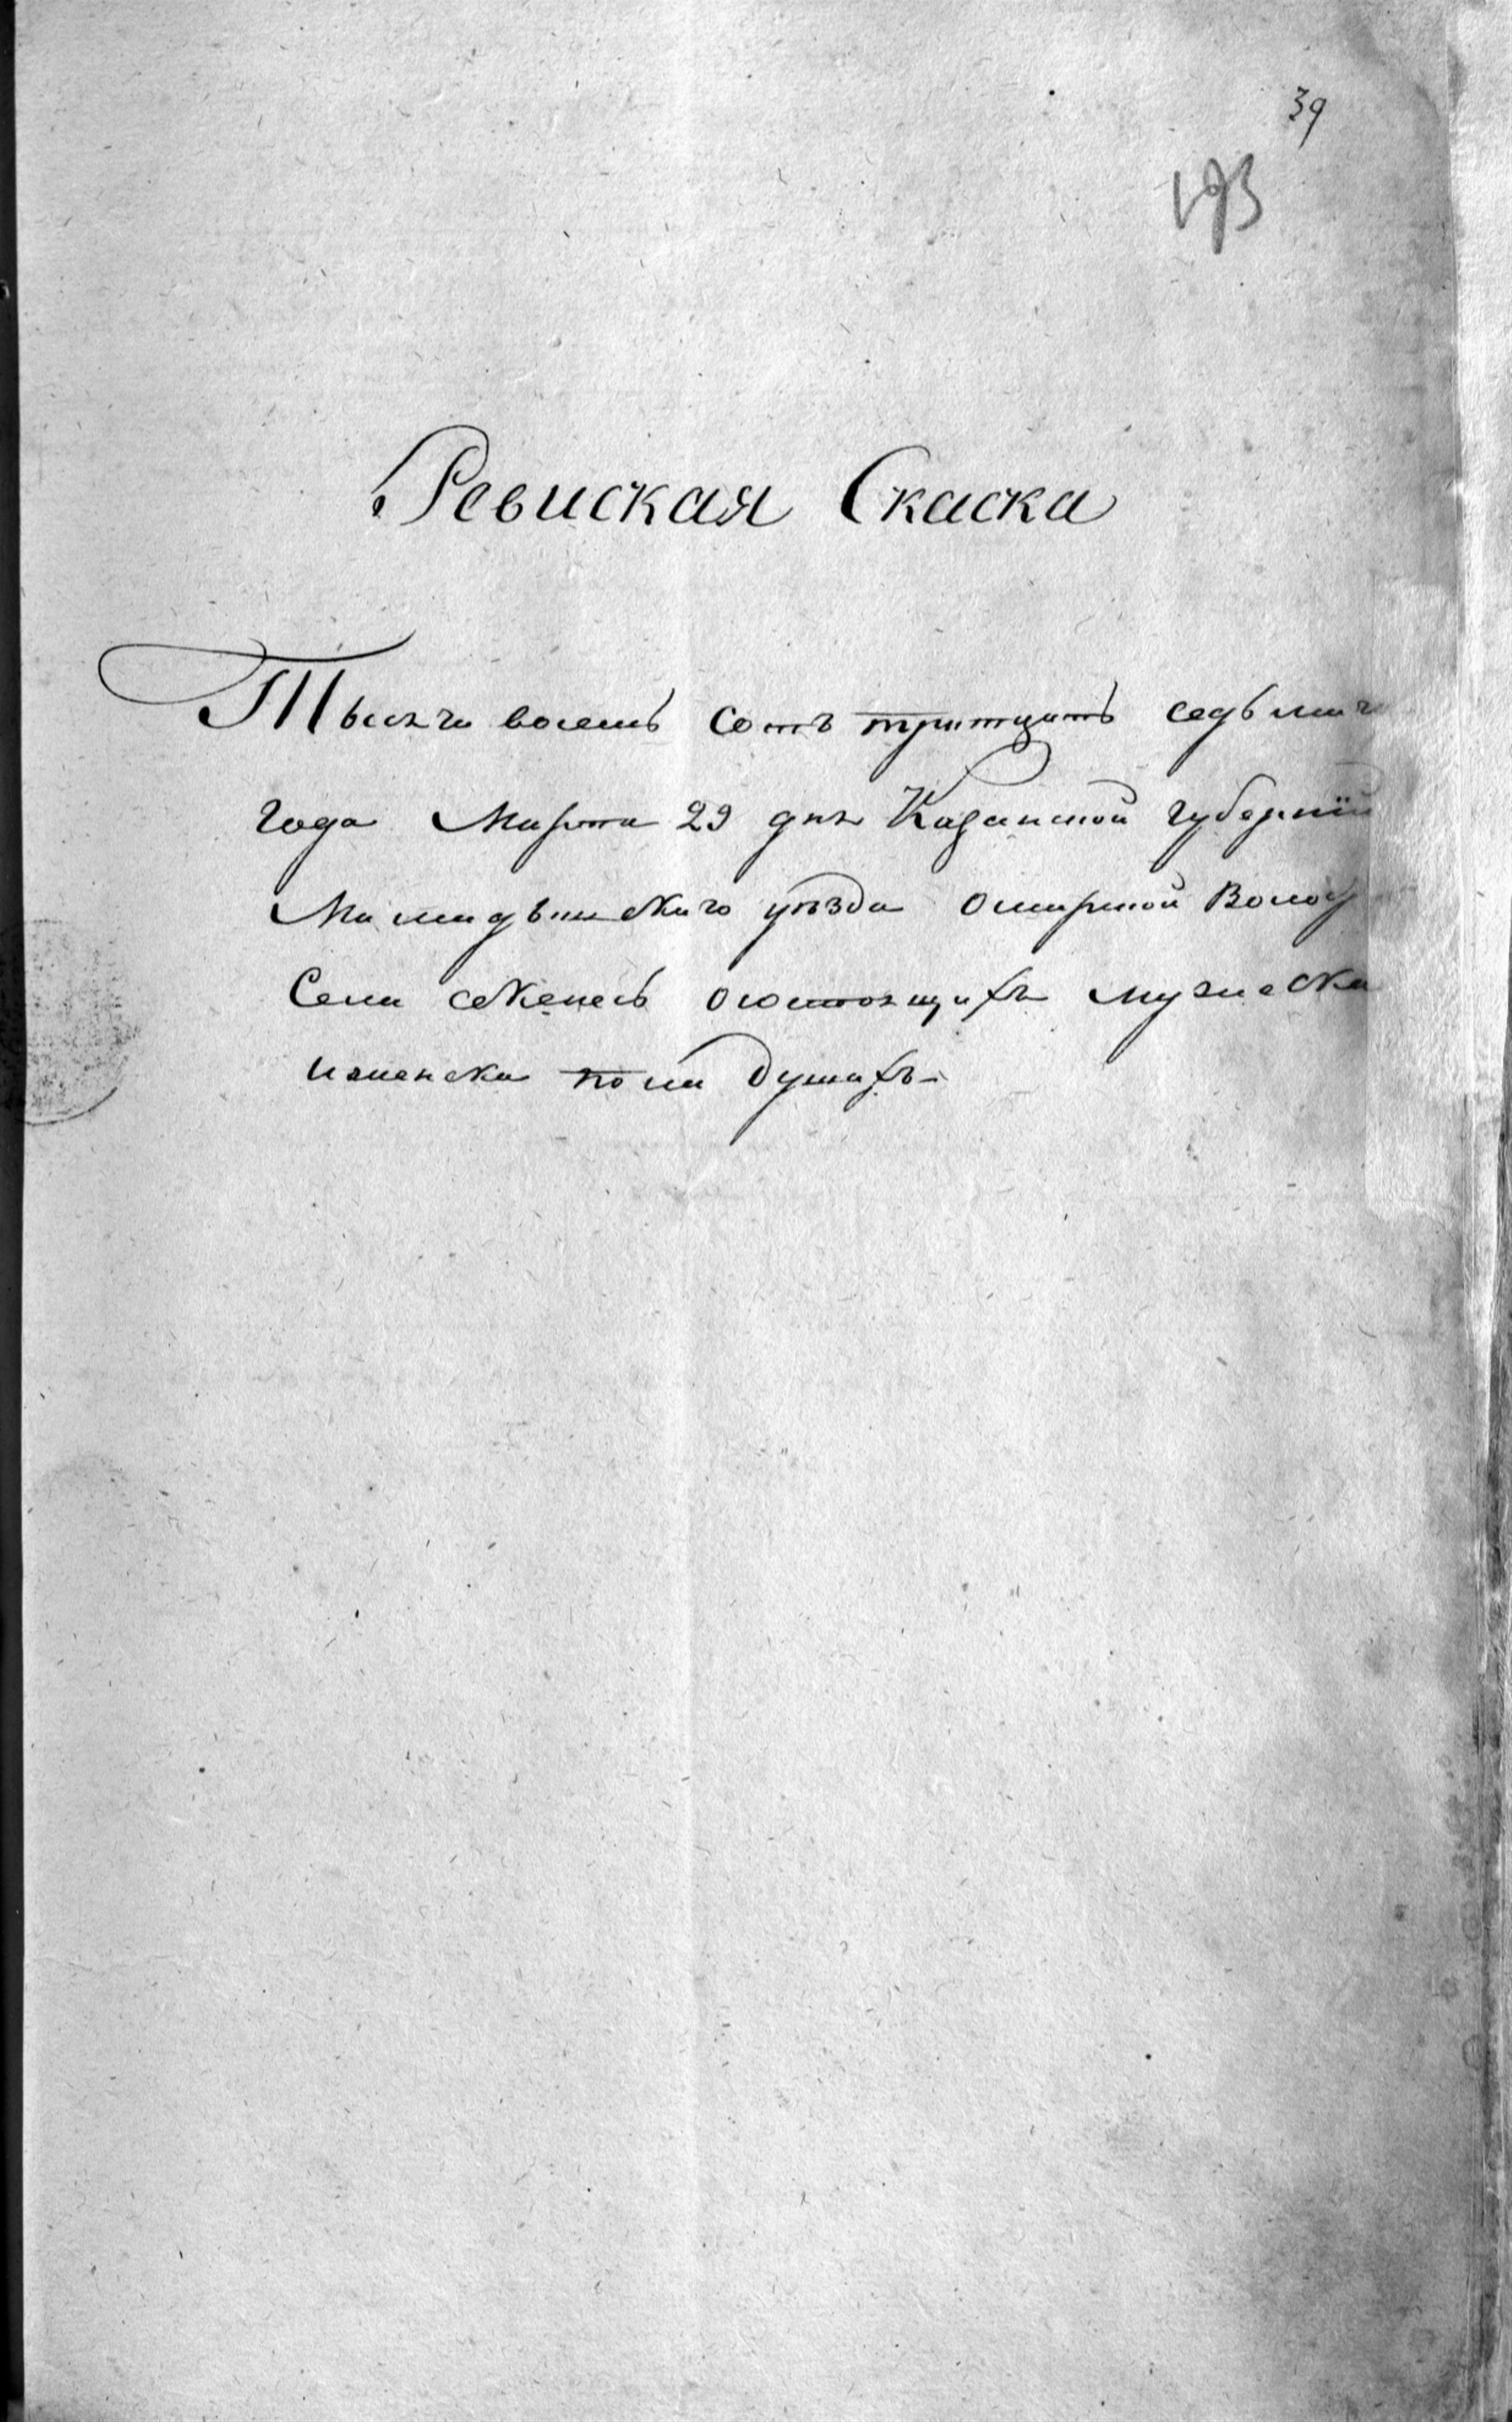 39
193
Ревиская Скаска
Тысяча восемь сотъ тритцать седьмаг
года Марта 29 дня Казанской губернїи
Мамадышскаго уѣзда Омарской Волос
Села секенесь о состоящихъ мужеска
и женска пола душахъ